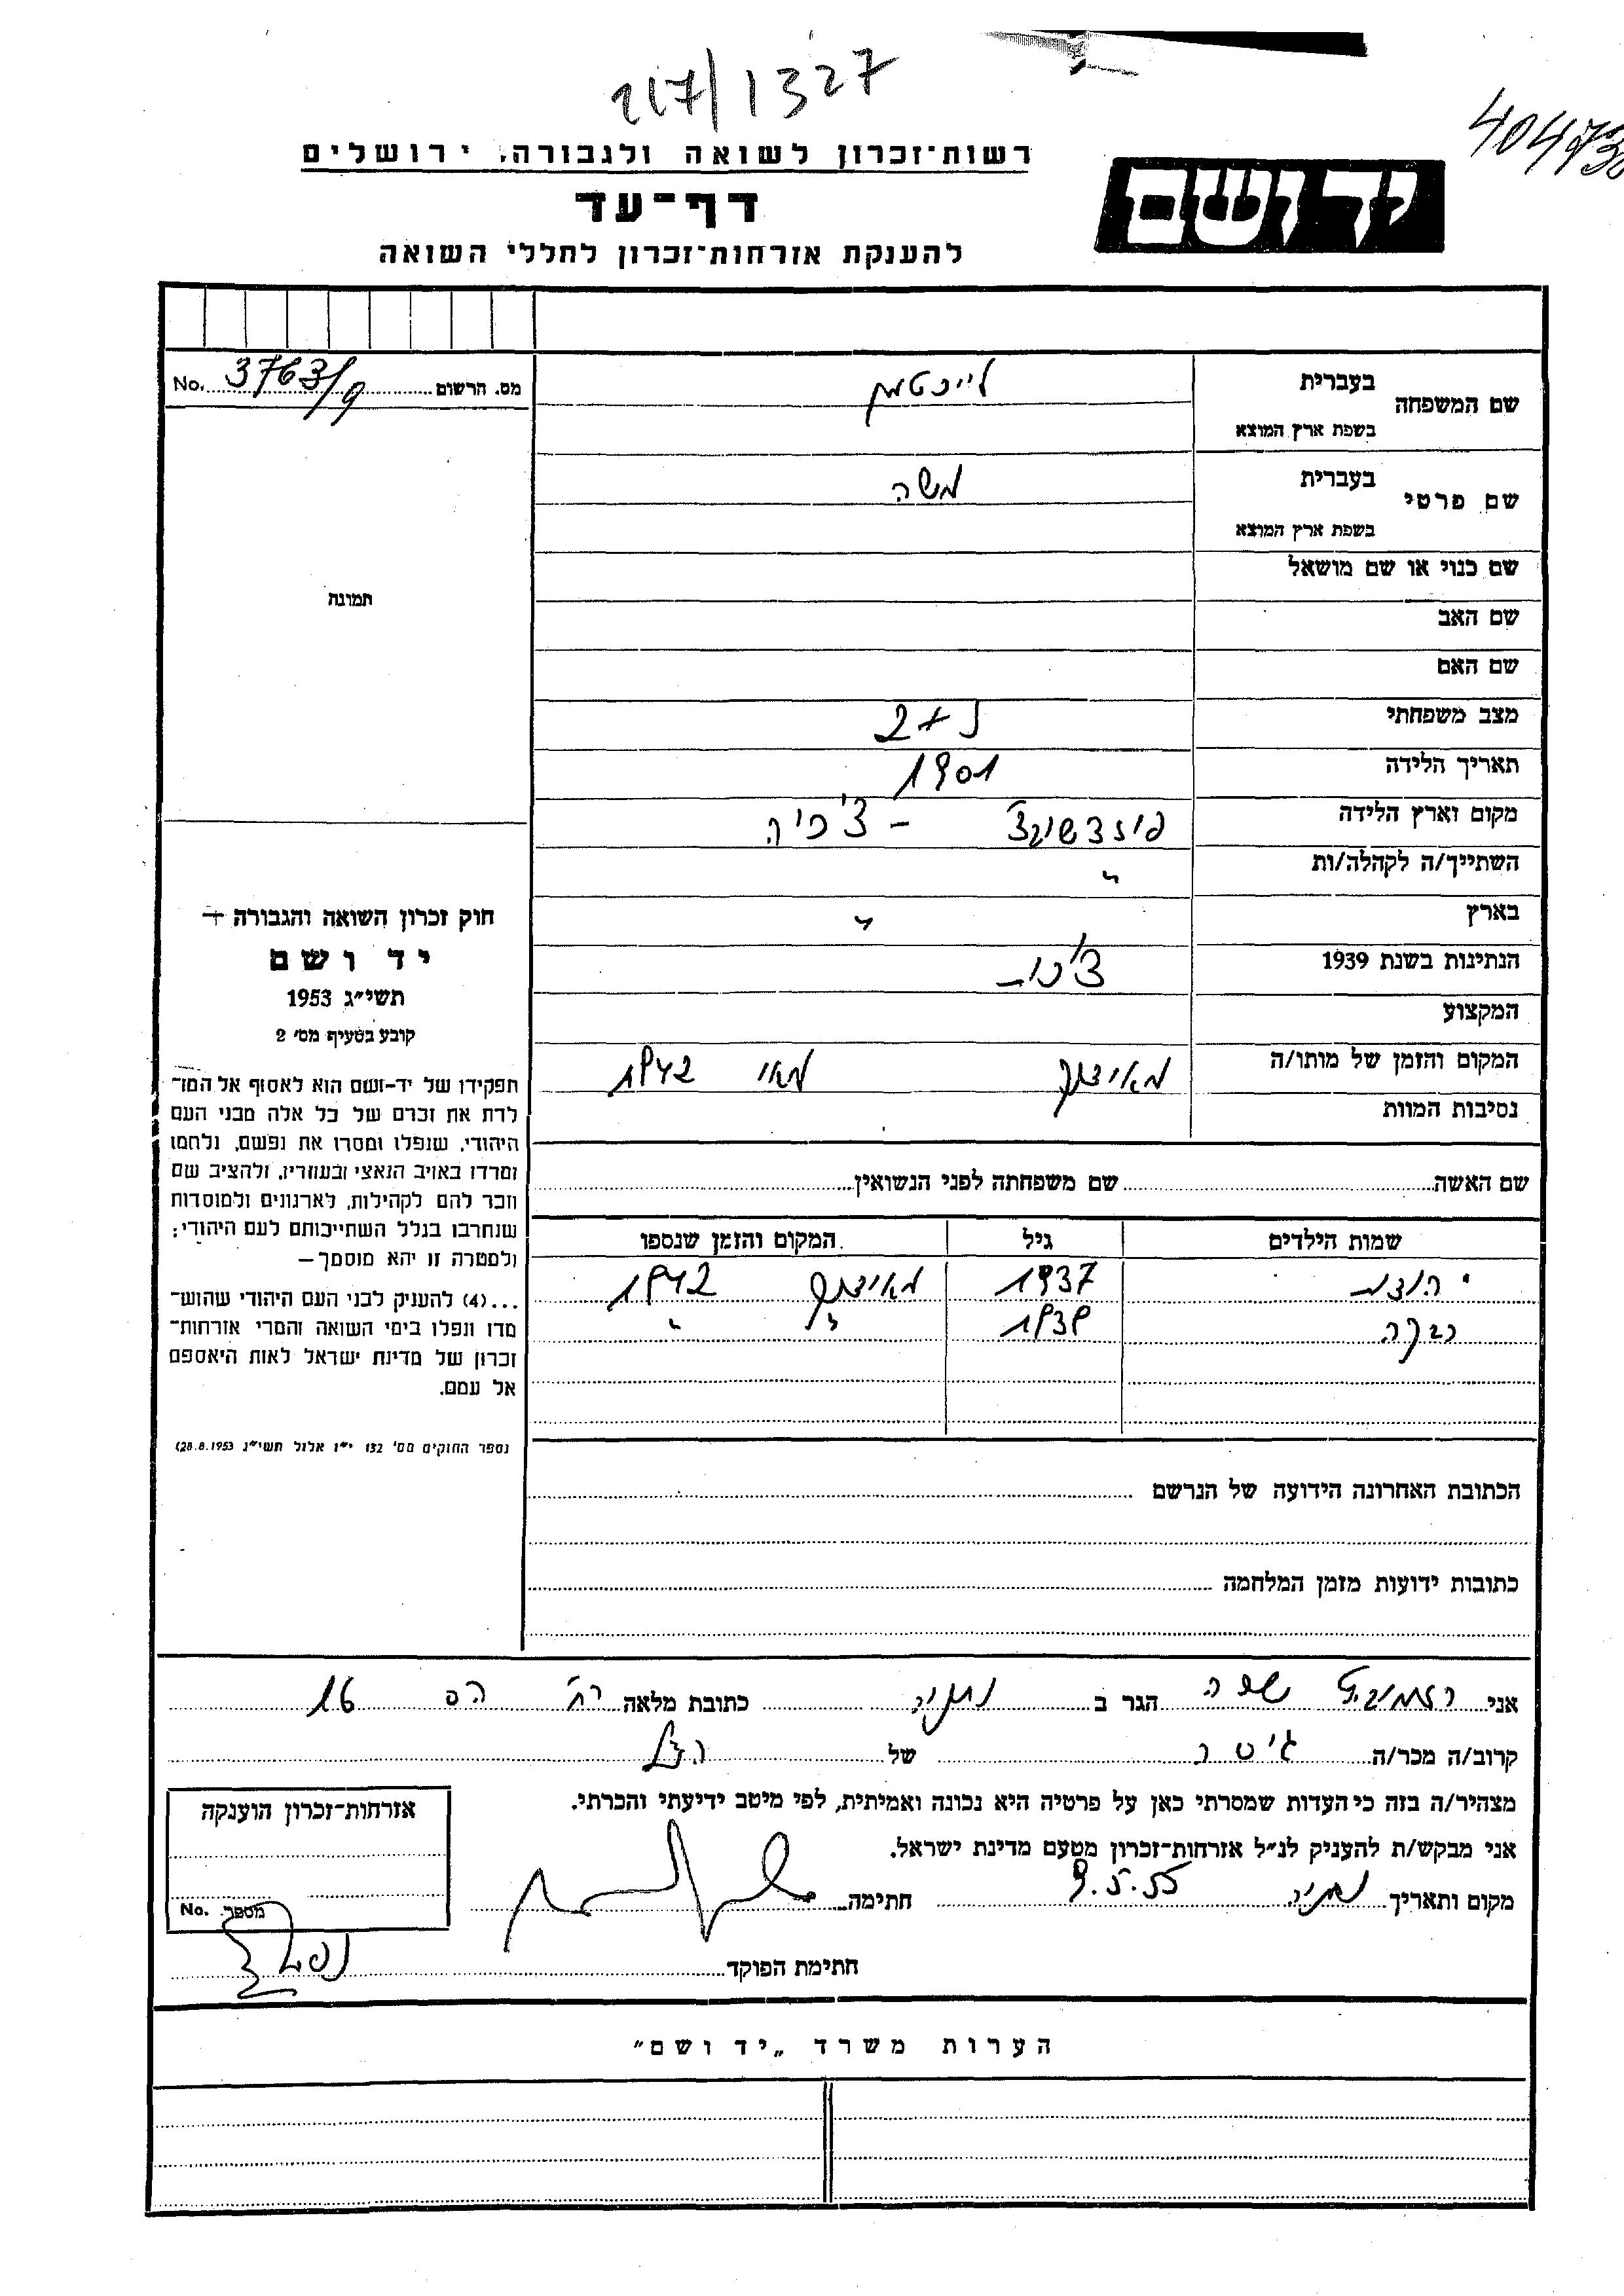 217/1327
40473
רשות־זכרון לשואה ולגבורה, ירושלים
יד ושם
דף־עד
להענקת אזרחות־זכרון לחללי השואה
מס. הרשום 3763/9 No.
שם המשפחה
בעברית לייכטמן
בשפת ארץ המוצא
שם פרטי
בעברית משה
בשפת ארץ המוצא
שם כנוי או שם מושאל
שם האב
שם האם
מצב משפחתי נ + 2
תאריך הלידה 1901
מקום וארץ הלידה - צ'כיה
השתייך/ה לקהלה/ות "
בארץ "
הנתינות בשנת 1939 צ'כית
המקצוע
המקום והזמן של מותו/ה מאידנק מאי 1942
נסיבות המוות
שם האשה שם משפחתה לפני הנשואין
שמות הילדים גיל המקום והזמן שנספו
יהודית 1937 מאידנק 1942
רבקה 1939 " "
תמונה
חוק זכרון השואה והגבורה –
יד ושם
תשי״ג 1953
קובע בסעיף מס׳ 2
תפקידו של יד־ושם הוא לאסוף אל המו־
לדת את זכרם של כל אלה מבני העם
היהודי, שנפלו ומסרו את נפשם, נלחמו
ומרדו באויב הנאצי ובעוזריו, ולהציב שם
וזכר להם לקהילות, לארגונים ולמוסדות
שנחרבו בגלל השתייכותם לעם היהודי;
ולמטרה זו יהא מוסמך –
...(4) להעניק לבני העם היהודי שהוש־
מדו ונפלו בימי השואה והמרי אזרחות־
זכרון של מדינת ישראל לאות היאספם
אל עמם.
נספר החוקים מס׳ 132 י״ז אלול תשי״ג 28.8.1953)
הכתובת האחרונה הידועה של הנרשם
כתובות ידועות מזמן המלחמה
אני שפרה הגר ב נתניה כתובת מלאה רח' 16
קרוב/ה מכר/ה גיסה של הנ"ל
מצהיר/ה בזה כי העדות שמסרתי כאן על פרטיה היא נכונה ואמיתית, לפי מיטב ידיעתי והכרתי.
אני מבקש/ת להעניק לנ״ל אזרחות־זכרון מטעם מדינת ישראל.
מקום ותאריך נתניה 9.5.55 חתימה
חתימת הפוקד
אזרחות־זכרון הוענקה
מספר No.
הערות משרד „יד ושם״